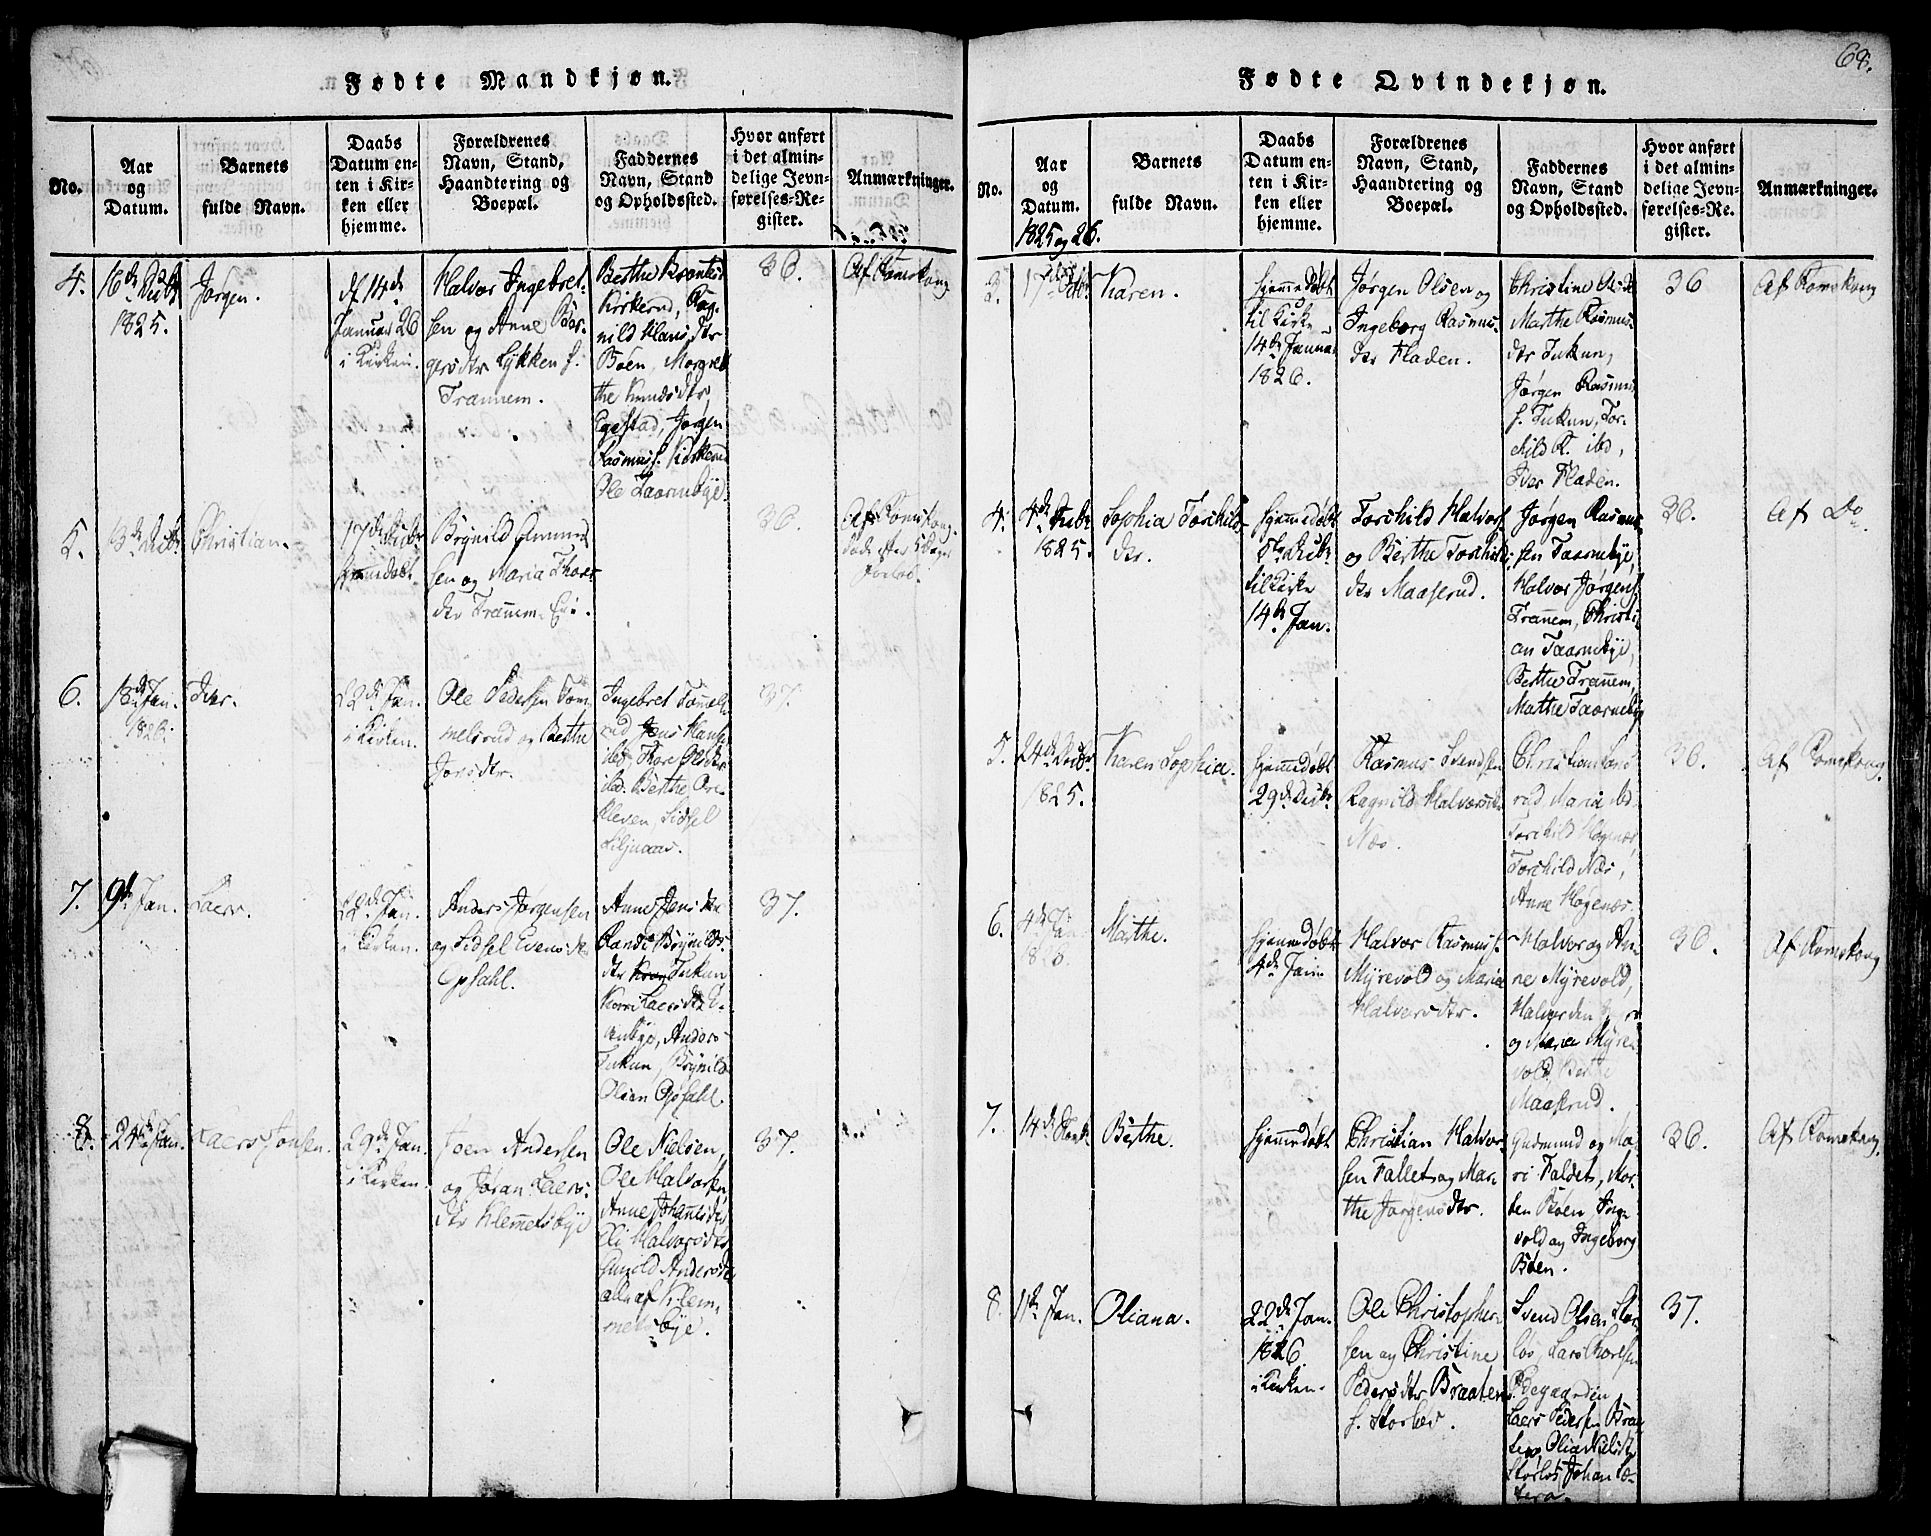 68.
Fødte Mandkjøn.
No.
Aar
og
Datum.
Barnets
fulde Navn.
Daabs
Datum en-
ten i Kir-
ken eller
hjemme.
Forældrenes
Navn, Stand,
Haandtering og
Boepæl.
Faddernes
Navn, Stand
og Opholdssted.
Hvor anført
i det almin-
delige Jevn-
førelses-Re-
gister.
Anmærkninger.
4.
16de Decbr
1825.
Jørgen.
14de
Januar 26
i Kirken.
Halvor Ingebret-
sen og Anne Bør-
gersdtr Lykken
Trannem.
Berthe
Kirkerud, Rag-
nild Hansdtr
Böen, Margret
the Knudsdtr,
Egestad, Jørgen
Rasmuss. Kirkerud
Ole Taarnebye
36.
Af Romskoug
5.
3de Decbr
Christian.
17de Decbr
hjemmedøbt.
Brynild Ammund
sen og Maria Thores
dtr Tranem Eie.
36.
Af Romskoug.
Døde efter 5 Dages
Forløb.
6.
13de Jan.
1826.
Iver.
22de Jan.
i Kirken.
Ole Pedersen Tom
melsrud og Berthe
Jonsdtr.
Ingebret Tomels
rud Jens Hans
ibd, Thore Olsdtr
ibd. Berthe Ore
kleven, Sidsel
Liljnaas.
37.
7.
9de Jan.
Laers.
22de Jan.
i Kirken.
Anders Jørgensen
og Sidsel Evensdtr
Opsahl.
Anne Jensdtr
Randi Brynilds
dtr Tukun
Karen Laersdtr
Anders
Tukun, Brynild
Olsen Opsahl.
37.
8.
24de Jan.
Laers Joensen.
29de Jan.
i Kirken.
Joen Andersen
og Jøran Laers-
dtr Klemmetsbye
Ole Nielsen,
Ole Halvorsen,
Anne Johannesdtr
Eli Halvorsdtr
Gunild Andersdtr
alle af Klem-
metsbye.
37.
Fødte Qvindekjøn.
No.
Aar
og
Datum.
1825 og 26.
Barnets
fulde Navn.
Daabs
Datum en-
ten i Kir-
ken eller
hjemme.
Forældrenes
Navn, Stand,
Haandtering og
Boepæl.
Faddernes
Navn, Stand
og Opholdssted.
Hvor anført
i det almin-
delige Jevn-
førelses-Re-
gister.
Anmærkninger.
3.
17de Octbr
Karen.
hjemmedøbt
til Kirke
14de Januar
1826.
Jørgen Olsen og
Ingeborg Rasmus-
dtr Fladen.
Christine Olsdtr
Marthe Rasmus-
dtr Tukun,
Jørgen Rasmus
s. Tukun, Tor-
child R. ibd,
Iver Fladen.
36
Af Romskoug
4.
4de Decbr
1825.
Sophia Torchilds-
dtr.
hjemmedøbt
5te Decbr
til Kirke
14de Jan.
Torchild Halvors.
og Berthe Torchilds
dtr Maaserud.
Jørgen Rasmus
sen Taarnebye,
Halvor Jørgens.
Tranem, Christi
an Taarnebye,
Berthe Tranem,
Mathe Taarnebye
36.
Af Do
5.
24de Decbr
1825.
Karen Sophia.
hjemmedøbt
29de Decbr
Rasmus Svendsen
Ragnild Halvorsdtr
Næs.
Christian
rud, Maria ibd
Torchild Høgenæs,
Torchild Næs,
Anne Høgenæs
36.
Af Romskoug.
6.
4de Jan
1826.
Marthe.
hjemmedøbt
4de Jan
Halvor Rasmuss.
Myrevold og Maria
Halvorsdtr.
Halvor og An-
ne Myrevold,
Halvor den Yngre
og Maria Myre-
vold, Berthe
Maaserud.
36.
Af Romskoug
7.
14de
Berthe.
hjemmedøbt
Christian Halvor-
sen Fallet og Mar-
the Jørgensdtr.
Gudmund og Ma-
ri Faldet, Mor-
ten Böen, Inge
vold og Ingeborg
Böen.
36.
Af Romskoug.
8.
11te Jan.
Oliana.
22de Jan.
1826
i Kirken.
Ole Christopher-
sen og Christine
Pedersdtr Braaten
s. Storløs.
Svend Olsen Stor-
løs, Lars Thoresen
Ødegaarden
Laers Pedersen Braa
ten, Olia Nielsdtr
Storløs, Johan Sæ-
tera.
37.